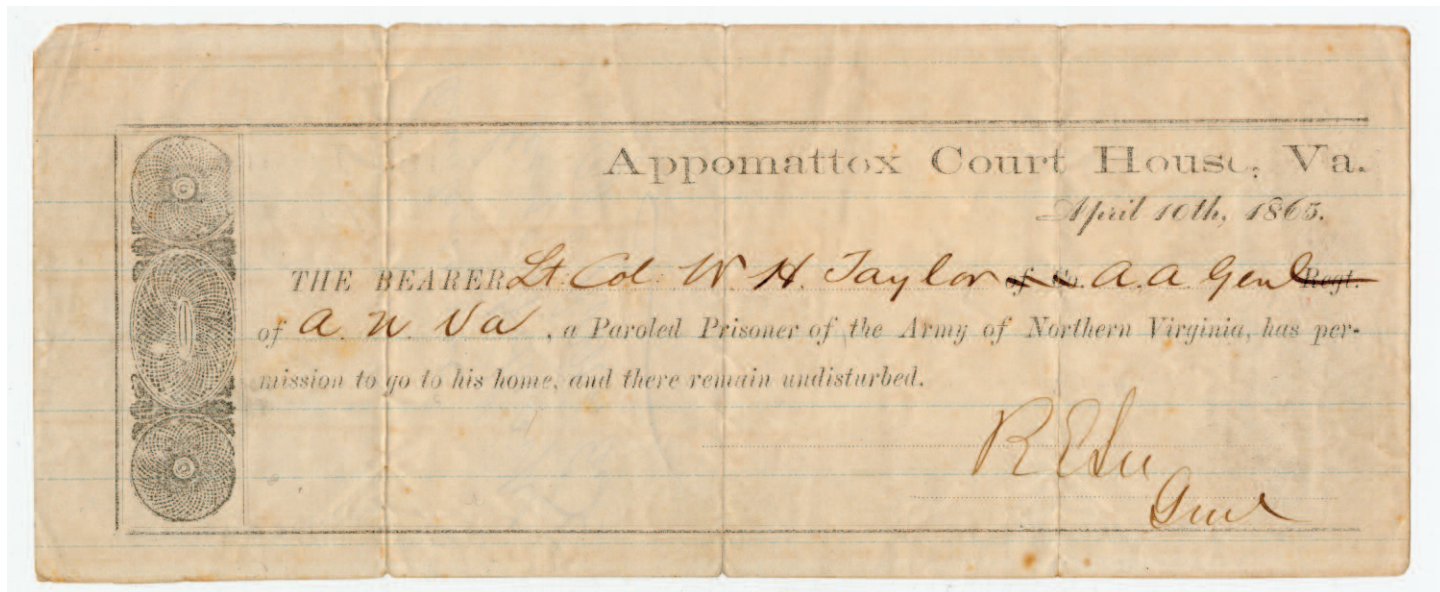 Appomattox Court House, Va.
April 10th, 1865.
THE BEARER Lt. Col. W. H. Taylor of Co. A. A. Genl Regt.
of A. N. Va , a Paroled Prisoner of the Army of Northern Virginia, has per-
mission to go to his home, and there remain undisturbed.
R E Lee
Genl